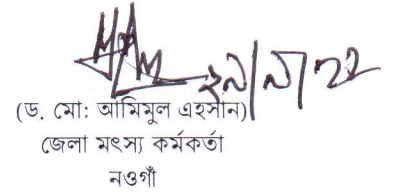 ২৯/৯/২২
(ড. মো: আমিমুল এহসান)
জেলা মৎস্য কর্মকর্তা
নওগাঁ